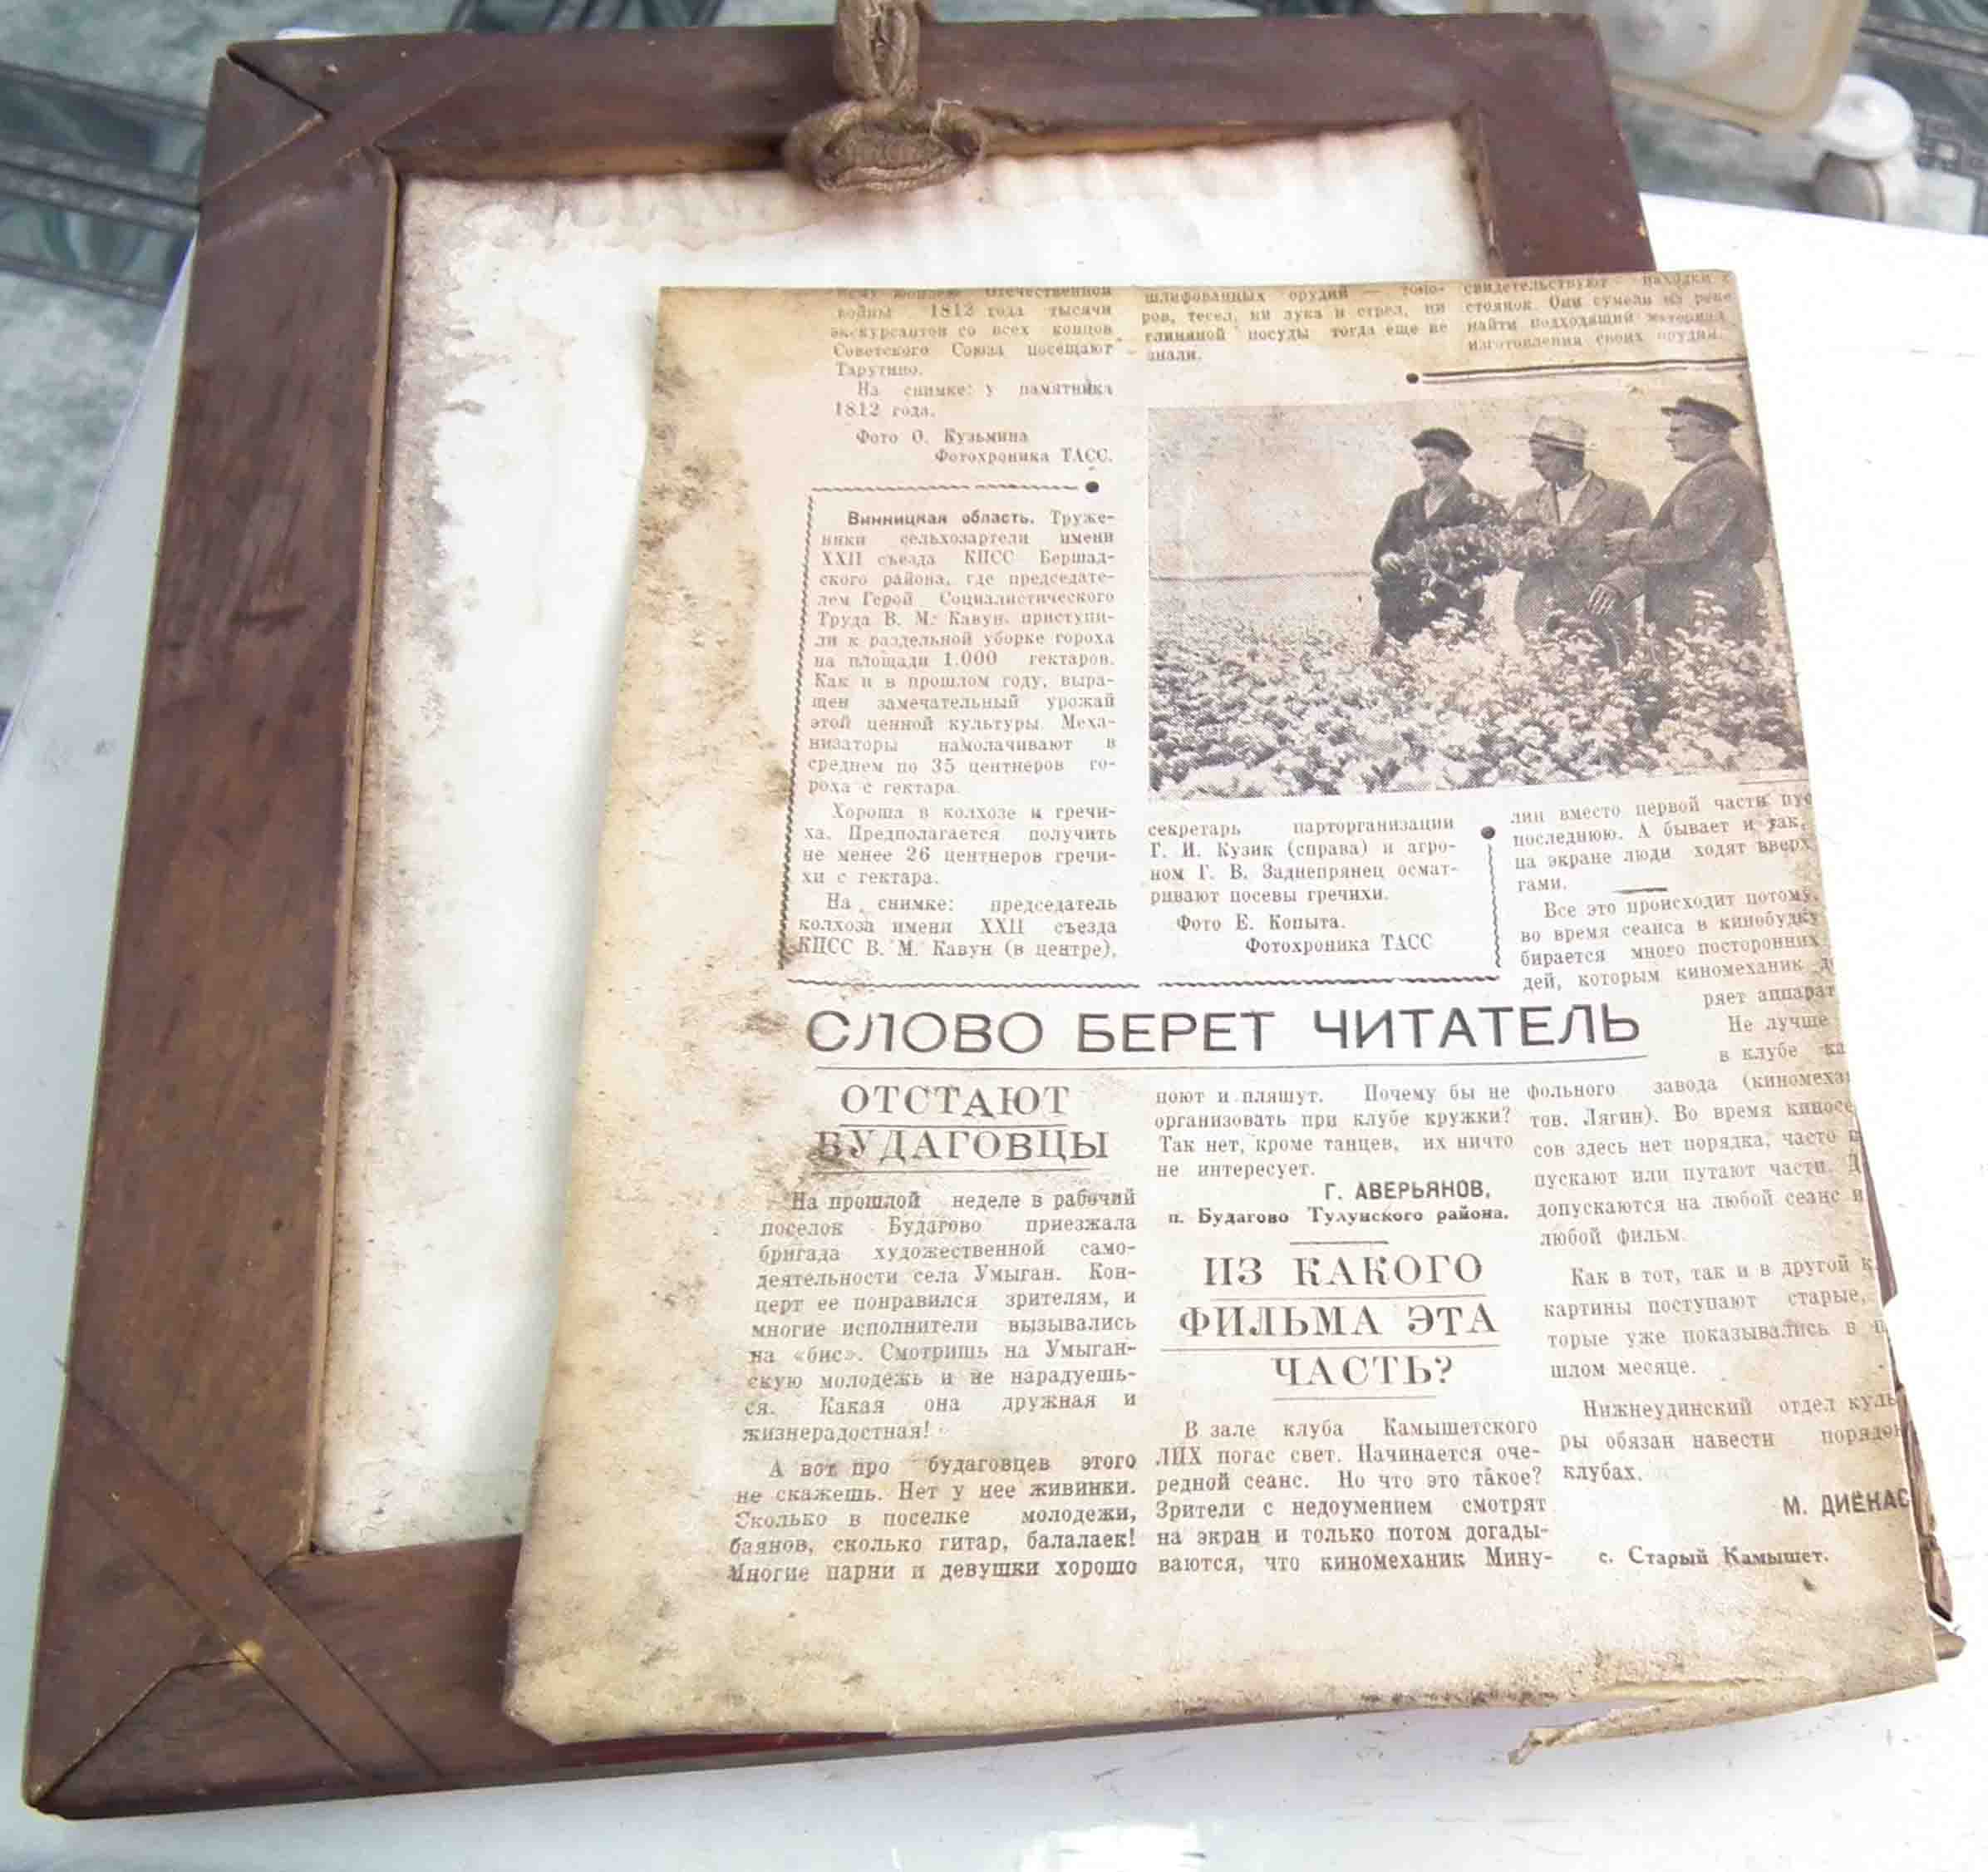 войны 1812 года тысячи
экскурсантов со всех концов
Советского Союза посещают
Тарутино.
На снимке: у памятника
1812 года.
Фото О. Кузьмина
Фотохроника ТАСС.
шлифованных орудий —
ров, тесел, ни лука и стрел, ни
глиняной посуды тогда еще не
знали.
свидетельствуют находки с
стоянок. Они сумели на реке
найти подходящий материал
изготовления своих орудий.
Винницкая область. Труже-
ники сельхозартели имени
XXII съезда КПСС Бершад-
ского района, где председате-
лем Герой Социалистического
Труда В. М. Кавун, приступи-
ли к раздельной уборке гороха
на площади 1.000 гектаров.
Как и в прошлом году, выра-
щен замечательный урожай
этой ценной культуры. Меха-
низаторы намолачивают в
среднем по 35 центнеров го-
роха с гектара.
Хороша в колхозе и гречи-
ха. Предполагается получить
не менее 26 центнеров гречи-
хи с гектара.
На снимке: председатель
колхоза имени XXII съезда
КПСС В. М. Кавун (в центре),
секретарь парторганизации
Г. И. Кузик (справа) и агро-
ном Г. В. Заднепрянец осмат-
ривают посевы гречихи.
Фото Е. Копыта.
Фотохроника ТАСС
СЛОВО БЕРЕТ ЧИТАТЕЛЬ
ОТСТАЮТ
БУДАГОВЦЫ
На прошлой неделе в рабочий
поселок Будагово приезжала
бригада художественной само-
деятельности села Умыган. Кон-
церт ее понравился зрителям, и
многие исполнители вызывались
на «бис». Смотришь на Умыган-
скую молодежь и не нарадуешь-
ся. Какая она дружная и
жизнерадостная!
А вот про будаговцев этого
не скажешь. Нет у нее живинки.
Сколько в поселке молодежи,
баянов, сколько гитар, балалаек!
Многие парни и девушки хорошо
поют и пляшут. Почему бы не
организовать при клубе кружки?
Так нет, кроме танцев, их ничто
не интересует.
Г. АВЕРЬЯНОВ,
п. Будагово Тулунского района.
ИЗ КАКОГО
ФИЛЬМА ЭТА
ЧАСТЬ?
В зале клуба Камышетского
ЛПХ погас свет. Начинается оче-
редной сеанс. Но что это такое?
Зрители с недоумением смотрят
на экран и только потом догады-
ваются, что киномеханик Мину-
лин вместо первой части пус
последнюю. А бывает и так,
на экране люди ходят вверх
гами.
Все это происходит потому,
во время сеанса в кинобудку
бирается много посторонних
дей, которым киномеханик д
ряет аппарат
Не лучше
в клубе ка
фольного завода (киномеха
тов. Лягин). Во время киносе
сов здесь нет порядка, часто п
пускают или путают части. Д
допускаются на любой сеанс и
любой фильм.
Как в тот, так и в другой к
картины поступают старые,
торые уже показывались в п
шлом месяце.
Нижнеудинский отдел куль
ры обязан навести порядок
клубах.
М. ДИЁНАС
с. Старый Камышет.